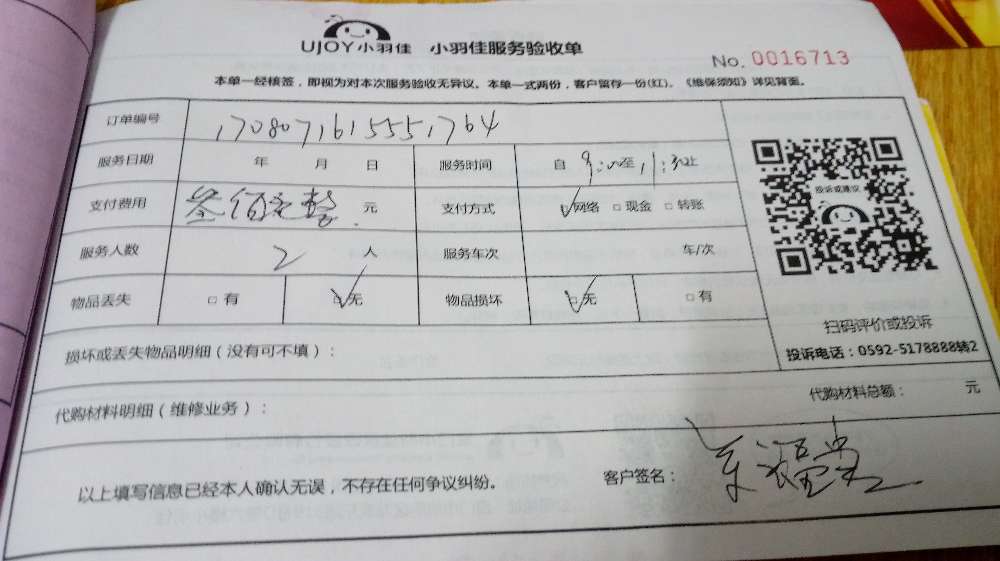 UJOY小羽佳 小羽佳服务验收单
No. 0016713
本单一经核签，即视为对本次服务验收无异议。本单一式两份，客户留存一份(红)。《维保须知》详见背面。
订单编号 1708071615551764
服务日期 年 月 日 服务时间 自 9:00至 11:30止
支付费用 叁佰元整 元 支付方式 网络 现金 转账
服务人数 2 人 服务车次 车/次
物品丢失 有 无 物品损坏 无 有
投诉或建议
扫码评价或投诉
投诉电话：0592-5178888转2
损坏或丢失物品明细（没有可不填）：
代购材料明细（维修业务）： 代购材料总额： 元
以上填写信息已经本人确认无误，不存在任何争议纠纷。 客户签名：